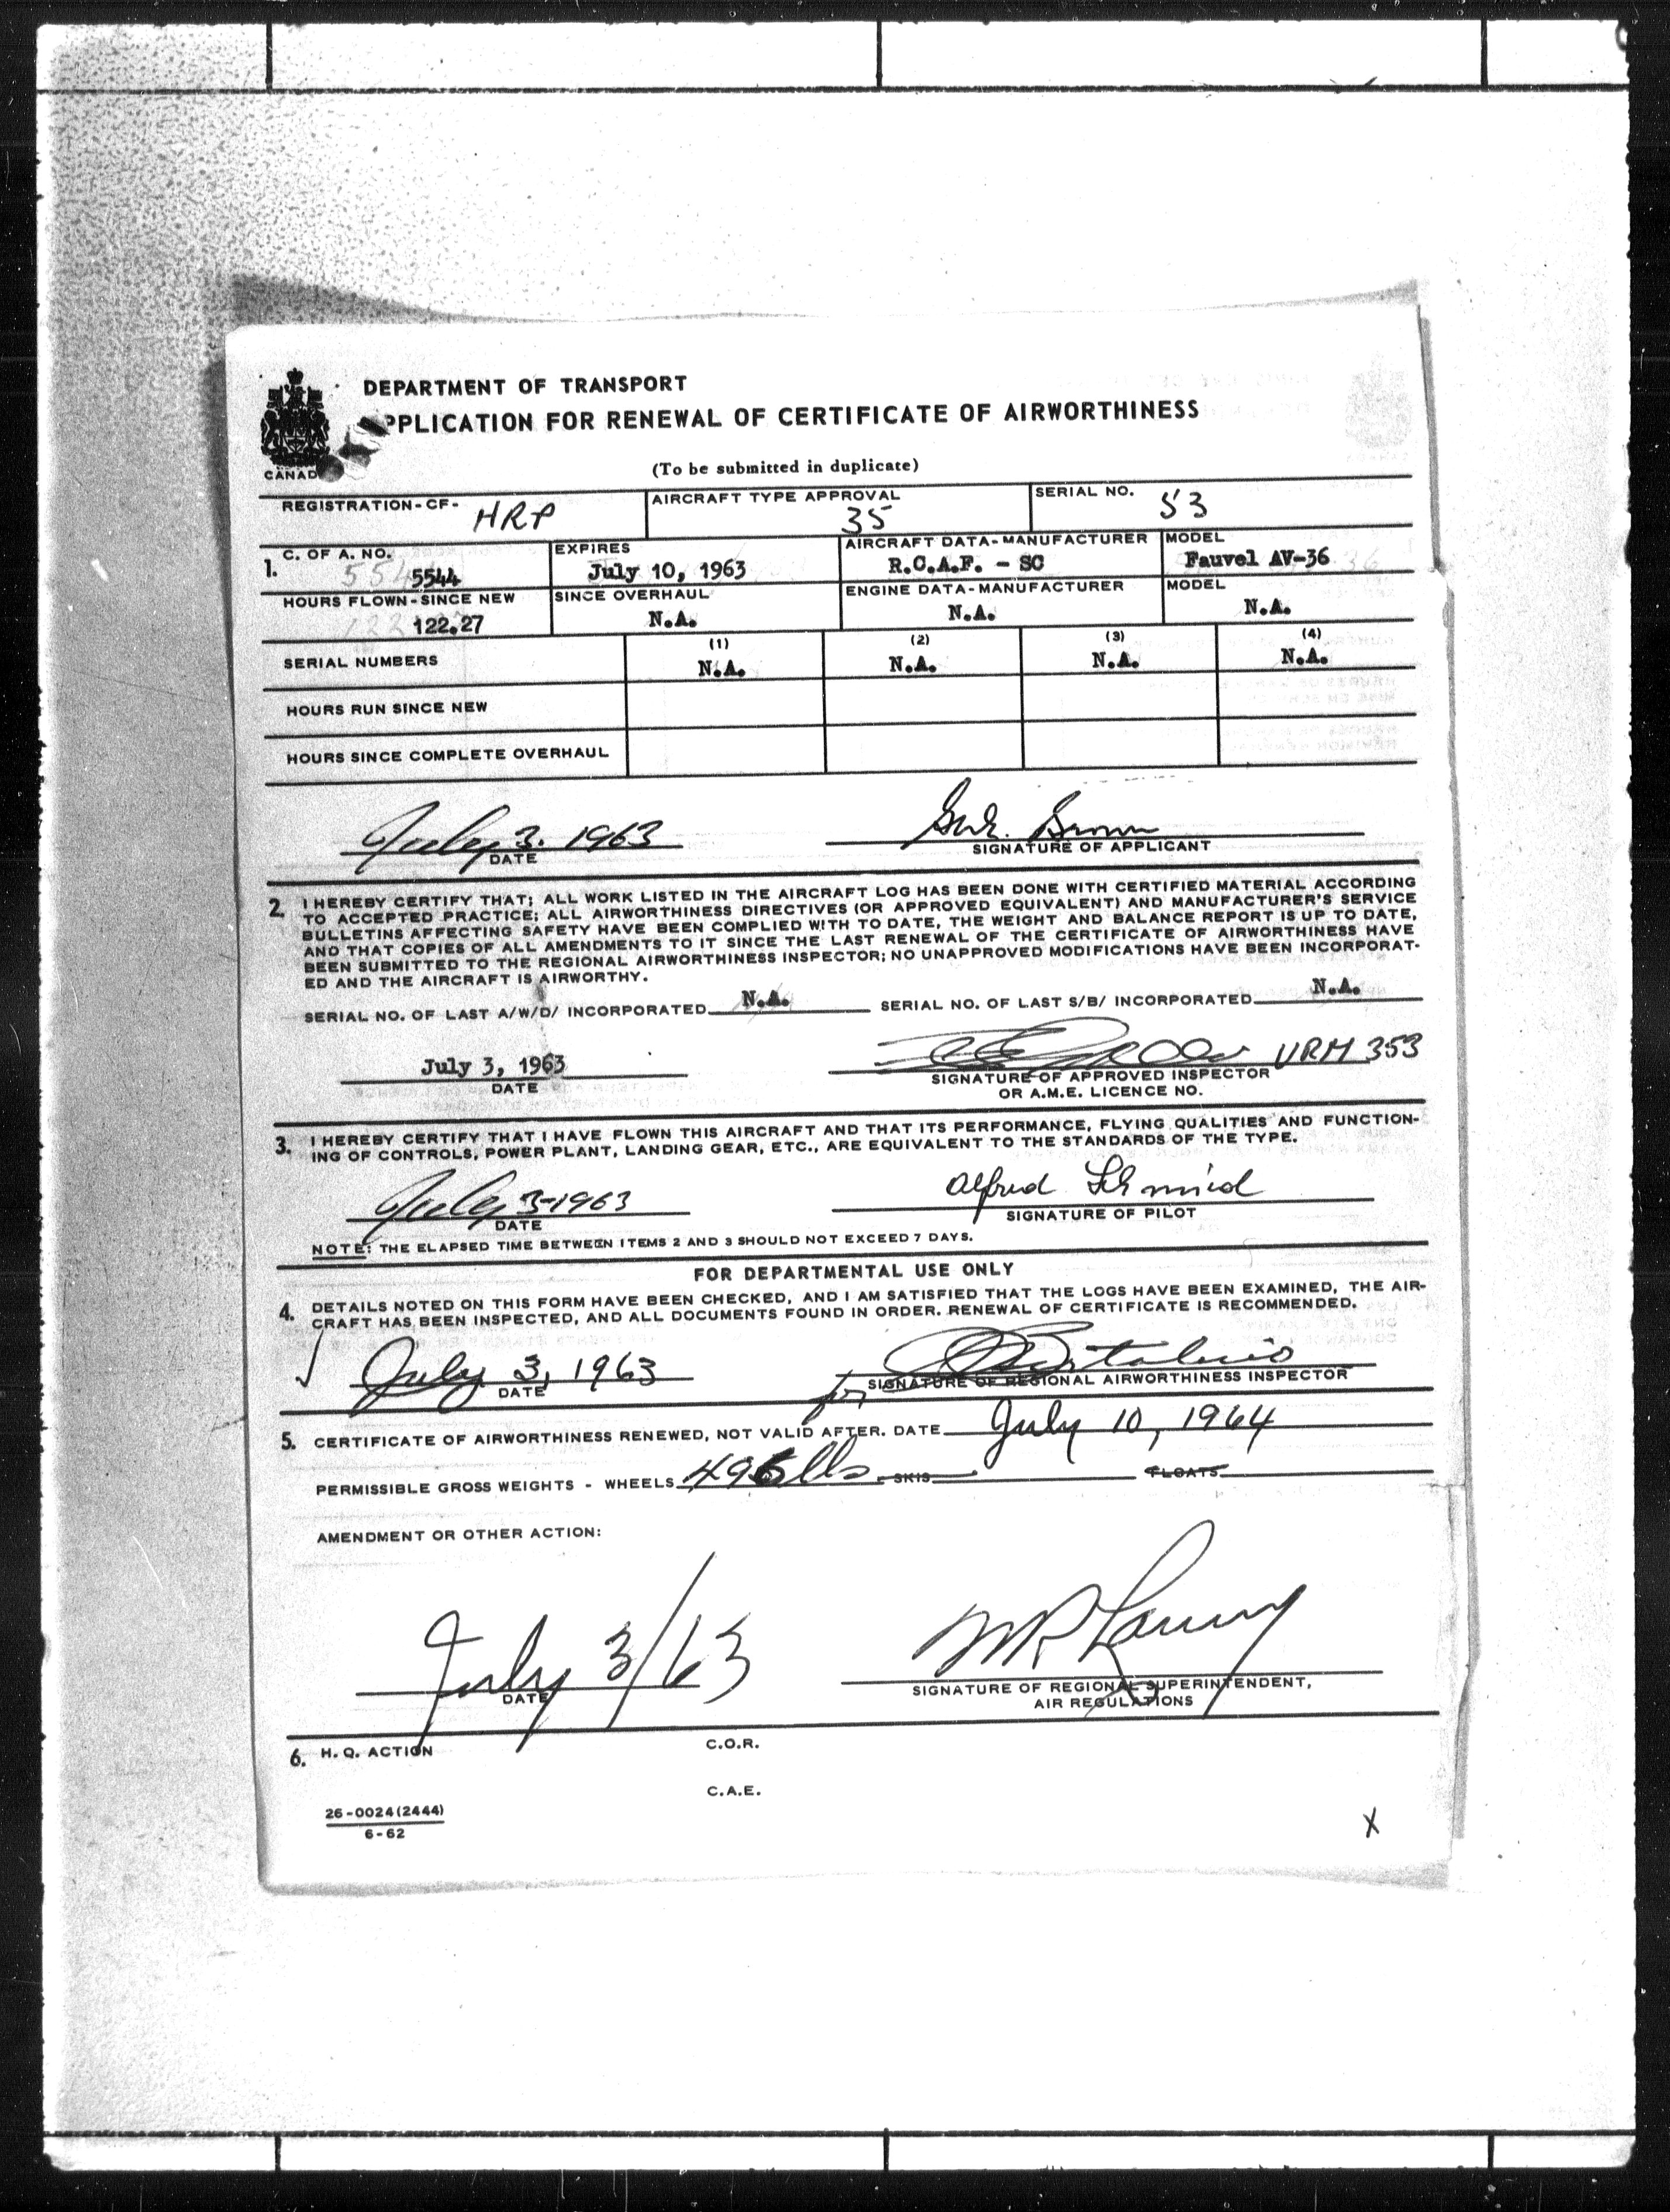 DEPARTMENT OF TRANSPORT
PPLICATION FOR RENEWAL OF CERTIFICATE OF AIRWORTHINESS
CANAD
(To be submitted in duplicate)
REGISTRATION-CF- HRP AIRCRAFT TYPE APPROVAL 35 SERIAL NO. 53
1. C. OF A. NO. 5544 EXPIRES July 10, 1963 AIRCRAFT DATA-MANUFACTURER R.C.A.F. - SC MODEL Fauvel AV-36
HOURS FLOWN-SINCE NEW 122.27 SINCE OVERHAUL N.A. ENGINE DATA-MANUFACTURER N.A. MODEL N.A.
SERIAL NUMBERS (1) N.A. (2) N.A. (3) N.A. (4) N.A.
HOURS RUN SINCE NEW
HOURS SINCE COMPLETE OVERHAUL
July 3. 1963 Brown
DATE SIGNATURE OF APPLICANT
2. I HEREBY CERTIFY THAT; ALL WORK LISTED IN THE AIRCRAFT LOG HAS BEEN DONE WITH CERTIFIED MATERIAL ACCORDING
TO ACCEPTED PRACTICE; ALL AIRWORTHINESS DIRECTIVES (OR APPROVED EQUIVALENT) AND MANUFACTURER'S SERVICE
BULLETINS AFFECTING SAFETY HAVE BEEN COMPLIED WITH TO DATE, THE WEIGHT AND BALANCE REPORT IS UP TO DATE,
AND THAT COPIES OF ALL AMENDMENTS TO IT SINCE THE LAST RENEWAL OF THE CERTIFICATE OF AIRWORTHINESS HAVE
BEEN SUBMITTED TO THE REGIONAL AIRWORTHINESS INSPECTOR; NO UNAPPROVED MODIFICATIONS HAVE BEEN INCORPORAT-
ED AND THE AIRCRAFT IS AIRWORTHY.
SERIAL NO. OF LAST A/W/D/ INCORPORATED N.A. SERIAL NO. OF LAST S/B/ INCORPORATED N.A.
July 3, 1963 VRM 353
DATE SIGNATURE OF APPROVED INSPECTOR
OR A.M.E. LICENCE NO.
3. I HEREBY CERTIFY THAT I HAVE FLOWN THIS AIRCRAFT AND THAT ITS PERFORMANCE, FLYING QUALITIES AND FUNCTION-
ING OF CONTROLS, POWER PLANT, LANDING GEAR, ETC., ARE EQUIVALENT TO THE STANDARDS OF THE TYPE.
July 3-1963 Alfred Schmid
DATE SIGNATURE OF PILOT
NOTE: THE ELAPSED TIME BETWEEN ITEMS 2 AND 3 SHOULD NOT EXCEED 7 DAYS.
FOR DEPARTMENTAL USE ONLY
4. DETAILS NOTED ON THIS FORM HAVE BEEN CHECKED, AND I AM SATISFIED THAT THE LOGS HAVE BEEN EXAMINED, THE AIR-
CRAFT HAS BEEN INSPECTED, AND ALL DOCUMENTS FOUND IN ORDER. RENEWAL OF CERTIFICATE IS RECOMMENDED.
July 3, 1963
DATE for SIGNATURE OF REGIONAL AIRWORTHINESS INSPECTOR
5. CERTIFICATE OF AIRWORTHINESS RENEWED, NOT VALID AFTER. DATE July 10, 1964
PERMISSIBLE GROSS WEIGHTS - WHEELS 496 lbs SKIS FLOATS
AMENDMENT OR OTHER ACTION:
July 3/63
DATE SIGNATURE OF REGIONAL SUPERINTENDENT,
AIR REGULATIONS
6. H. Q. ACTION C.O.R.
C.A.E.
26-0024 (2444)
6-62
X